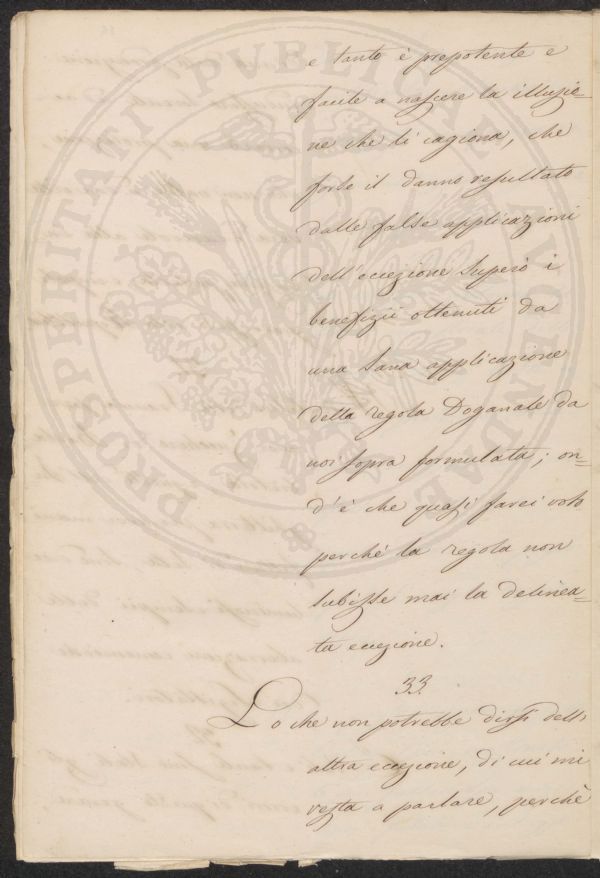 e tanto è prepotente e
facile a nascere la illusio=
ne che li cagiona, che
forse il danno resultato
dalle false applicazioni
dell'eccezione superò i
benefizii ottenuti da
una sana applicazione
della regola Doganale da
noi sopra formulata; on=
d'è che quasi farei voto
perché la regola non
subisse mai la delinea=
ta eccezione.
33.
Lo che non potrebbe dirsi dell'
altra eccezione, di cui mi
resta a parlare, perchè
PROSPERITATI PVBLICAE AVGENDAE